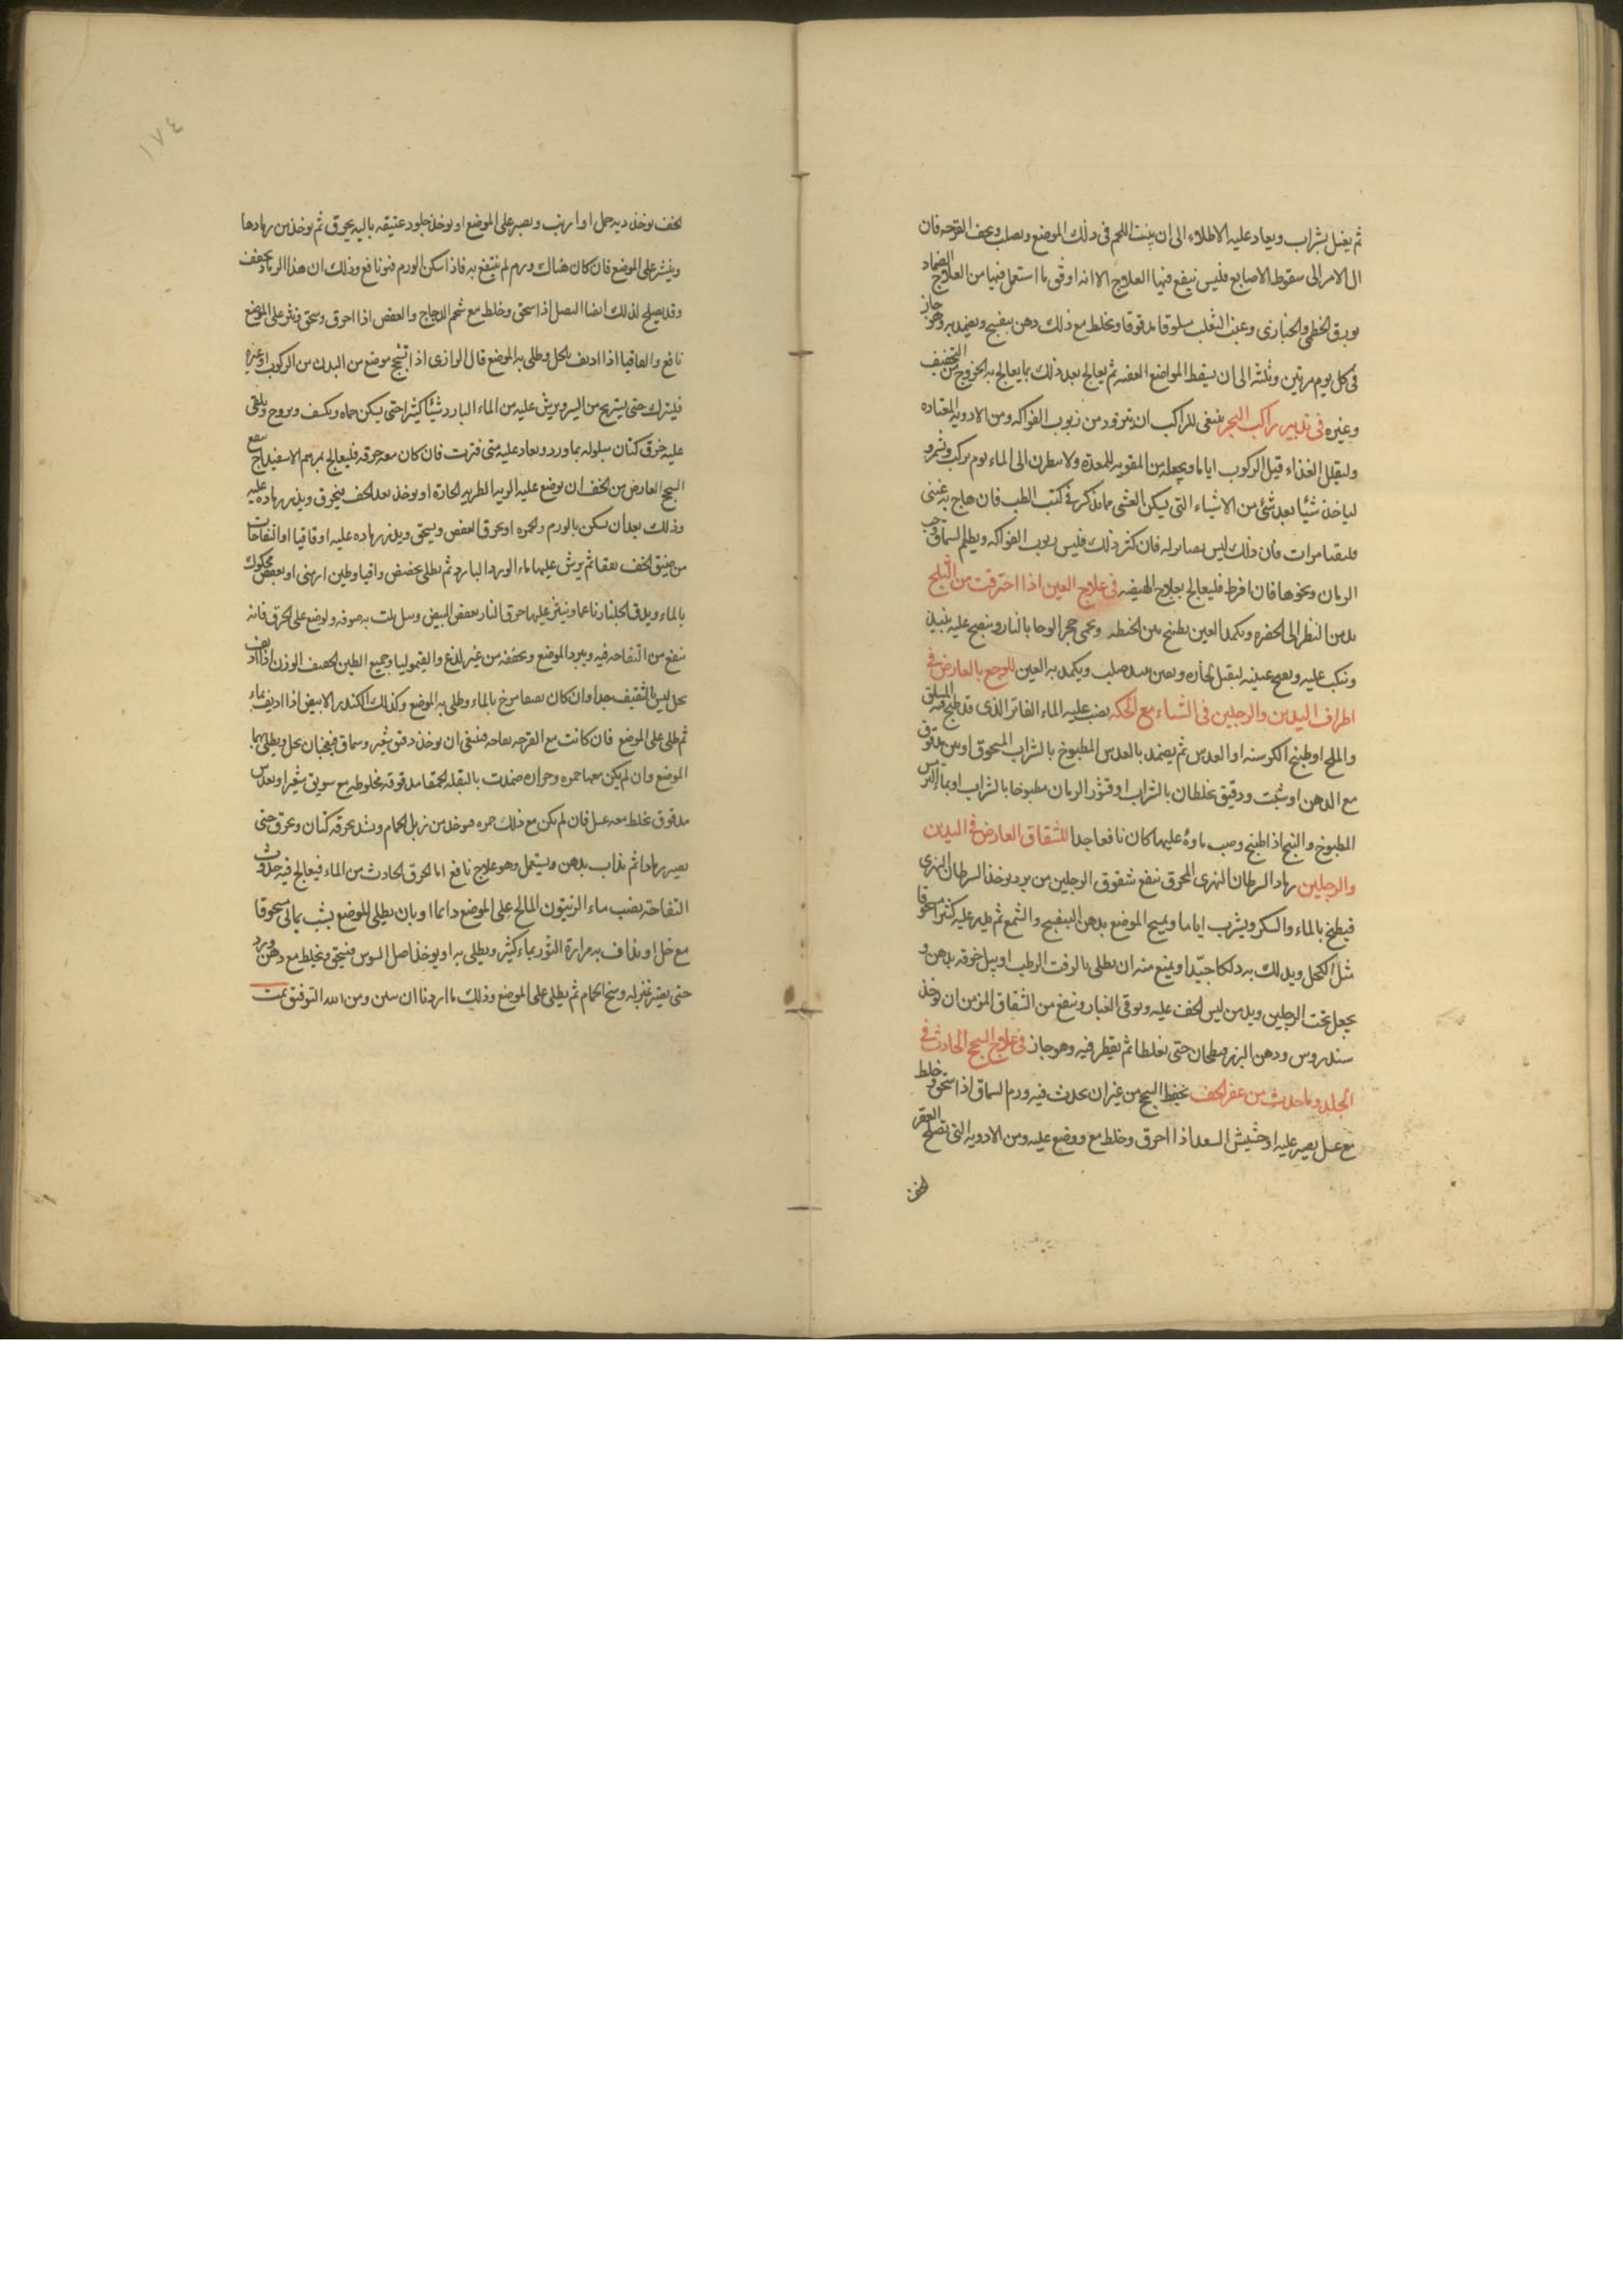 ثم يغسل بشراب ويعاد عليه الاطلاء الى ان ينبت اللحم فى ذلك الموضع ويصلب ويجف القرحه فان
ال الامر الى سقوط الاصابع فليس ينفع فيها العلاج الا انه اوفق ما استعمل فيها من العلاج الضماد
بورق الخطمى والخبازى وعنب الثعلب مسلوقا مدقوقا ويخلط مع ذلك دهن بنفسج ويضمد به وهو حاز
فى كل يوم مرتين وثلثه الى ان يسقط المواضع العفنه ثم يعالج بعد ذلك بما يعالج به الخروج من التجفيف
وغيره فى تدبير راكب البحر ينبغى للراكب ان يتزود من ربوب الفواكه ومن الادويه المعتاده
وليقلل الغذاء قبل الركوب اياما ويجعله من المقويه للمعدة ولا ينظرن الى الماء يوم يركب
لياخذ شيئا بعد شئ من الاشياء التى يسكن الغثى مما يذكر فى كتب الطب فان هاج به غثى
فليتقيا مرات فان ذلك ليس بضار له فان كثر ذلك فليس ربوب الفواكه ويطعم السماق وحب
الرمان ونحوها فان افرط فليعالج بعلاج الهيضه فى علاج العين اذا احترقت من الثلج
يدمن النظر الى الخضره ويكمد العين بطبيخ تبن الحنطه ويحمى حجر الرحا بالنار وينضح عليه بنبيذ
وينكب عليه ويفتح عينيه ليقبل بخاره وبعين نبيذ صلب ويكمد به العين للوجع بالعارض فى
اطراف اليدين والرجلين فى الشتاء مع الحكه يصب عليه الماء الفاتر الذى قد طبخ فيه السلق
والملح او طبيخ الكرسنه او العدس ثم يضمد بالعدس المطبوخ بالشراب المسحوق او تين مدقوق
مع الدهن او شبت ودقيق يخلطان بالشراب او قشور الرمان مطبوخا بالشراب او بماء الترمس
المطبوخ والبنج اذا طبخ وصب ماوه عليها كان نافعا جدا للشقاق العارض فى اليدين
والرجلين رماد السرطان النهرى المحرق ينفع شقوق الرجلين من برد يوخذ السرطان النهرى
فيطبخ بالماء والسكر ويشرب اياما ويمسح الموضع بدهن البنفسج والشمع ثم يذر عليه كثيرا مسحوقا
مثل الكحل ويدلك به دلكا جيدا ويمنع منه ان يطلى بالزفت الرطب او يبل خرقه بدهن و
يجعل تحت الرجلين ويدمن لبس الخف عليه ويوقى الغبار وينفع من الشقاق المزمن ان يوخذ
سندروس ودهن البزر فيطبخان حتى يغلظا ثم يقطر فيه وهو حار فى علاج السحج الحادث فى
الجلد وما حدث من عقر الخف يحفظ السحج من غير ان يحدث فيه ورم السماق اذا سحق وخلط
مع عسل يصير عليه او حشيش السعد اذا احرق وخلط مع ووضع عليه ومن الادويه التى تصلح العقر
الخف
١٧٤
الخف يوخذ ريه حمل او ارنب ويصير على الموضع او يوخذ جلود عتيقه باليه يحرق ثم يوخذ من رمادها
وينثر على الموضع فان كان هناك ورم لم ينتفع به فاذا سكن الورم فهو نافع وذلك ان هذا الرماد يجفف
وقد يصلح لذلك ايضا البصل اذا سحق وخلط مع شحم الدجاج والعفص اذا احرق وسحق ونثر على الموضع
نافع والقاقيا اذا اديف بالخل وطلى به الموضع قال الرازى اذا انسحج موضع من البدن من الركوب او غيره
فليترك حتى يستريح من السير ويرش عليه من الماء البارد شيئا كثيرا حتى يسكن حماه ويكسف ويروح ويلقى
عليه خرق كتان مبلوله بماورد ويعاد عليه متى فترت فان كان معه حرقه فليعالج بمرهم الاسفيداج ينفع
السحج العارض من الخف ان يوضع عليه الريه الطريه الحارة او يوخذ نعل الخف فيحرق ويذر رماده عليه
وذلك بعد ان يسكن بالورم والحمره او يحرق العفص ويسحق ويذر رماده عليه او قاقيا او النفاخات
من ضيق الخف يفقا ثم يرش عليها ماء الورد البارد ثم يطلى بحضض واقاقيا وطين ارمنى او بعفص محكوك
بالماء ويدق الجلنار ناعما وينثر عليها حرق النار بعفص البيض وسل يلت به صوفه ويوضع على الحرق فانه
ينفع من النفاخه فيه ويبرد الموضع ويجففه من غير لذع والقيموليا وجميع الطين الخفيف الوزن اذا اديف
بخل ليس بالثقيف جدا وان كان ثقيفا مزج بالماء وطلى به الموضع وكذلك الكندر الابيض اذا اديف بماء
ثم طلى على الموضع فان كانت مع القرحه نفاخه فينبغى ان يوخذ دقيق شعير وسماق فيعجنان بخل ويطلى بهما
الموضع وان لم يكن معها حمره وحراره ضمدت بالبقله الحمقا مدقوقه مخلوطه مع سويق شعير او بعدس
مدقوق يخلط معه عسل فان لم يكن مع ذلك حمره فيوخذ من زبل الحمام ويشد بخرقه كتان ويحرق حتى
يصير رمادا ثم يذاب بدهن ويستعمل وهو علاج نافع اما الحرق الحادث من الماء فيعالج فيه حدوث
النفاخة يصب ماء الزيتون المالح على الموضع دائما او بان يطلى الموضع بشب يمانى مسحوقا
مع خل او يداف به مرارة الثور بماء كثير ويطلى به او يوخذ اصل السوس فيسحق ويخلط مع دهن ورد
حتى يصير بمنزله وسخ الحمام ثم يطلى على الموضع وذلك ما اردنا ان نبين ومن الله التوفيق تمت